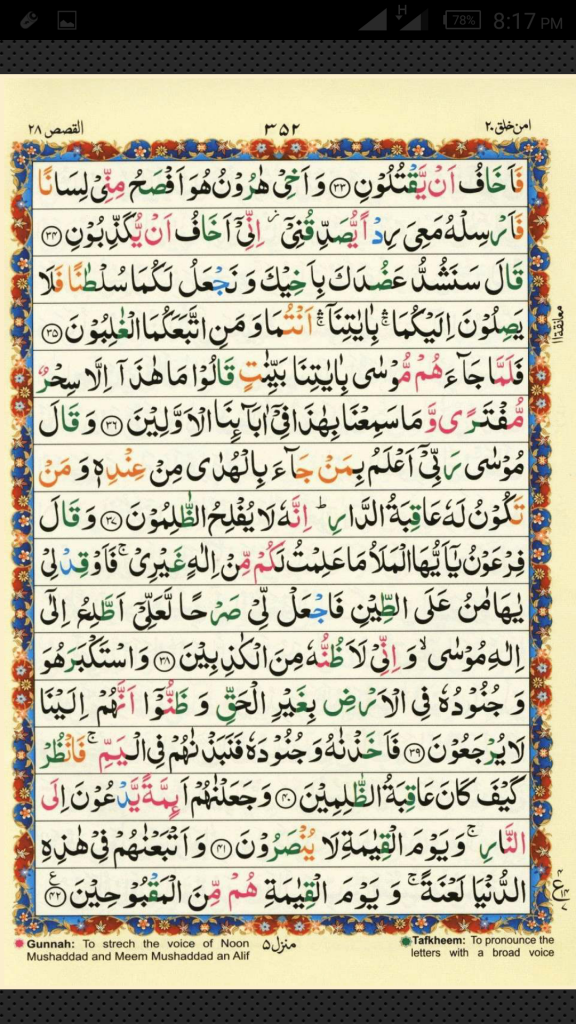 H
78% 8:17 PM
القصص ۲۸ ۳۵۲ امن خلق ۲۰
فَاَخَافُ اَنْ يَّقْتُلُوْنِ ﴿۳۳﴾ وَ اَخِيْ هٰرُوْنُ هُوَ اَفْصَحُ مِنِّيْ لِسَانًا
فَاَرْسِلْهُ مَعِيَ رِدْاً يُّصَدِّقُنِيْۤ ز اِنِّيْۤ اَخَافُ اَنْ يُّكَذِّبُوْنِ ﴿۳۴﴾
قَالَ سَنَشُدُّ عَضُدَكَ بِاَخِيْكَ وَ نَجْعَلُ لَكُمَا سُلْطٰنًا فَلَا
يَصِلُوْنَ اِلَيْكُمَا ۛۚ بِاٰيٰتِنَاۤ ۛۚ اَنْتُمَا وَ مَنِ اتَّبَعَكُمَا الْغٰلِبُوْنَ ﴿۳۵﴾
معانقة ۱۱
فَلَمَّا جَآءَهُمْ مُّوْسٰى بِاٰيٰتِنَا بَيِّنٰتٍ قَالُوْا مَا هٰذَاۤ اِلَّا سِحْرٌ
مُّفْتَرًى وَّ مَا سَمِعْنَا بِهٰذَا فِيْۤ اٰبَآئِنَا الْاَوَّلِيْنَ ﴿۳۶﴾ وَ قَالَ
مُوْسٰى رَبِّيْۤ اَعْلَمُ بِمَنْ جَآءَ بِالْهُدٰى مِنْ عِنْدِهٖ وَ مَنْ
تَكُوْنُ لَهٗ عَاقِبَةُ الدَّارِ ؕ اِنَّهٗ لَا يُفْلِحُ الظّٰلِمُوْنَ ﴿۳۷﴾ وَ قَالَ
فِرْعَوْنُ يٰۤاَيُّهَا الْمَلَاُ مَا عَلِمْتُ لَكُمْ مِّنْ اِلٰهٍ غَيْرِيْ ۚ فَاَوْقِدْ لِيْ
يٰهَامٰنُ عَلَى الطِّيْنِ فَاجْعَلْ لِّيْ صَرْحًا لَّعَلِّيْۤ اَطَّلِعُ اِلٰۤى
اِلٰهِ مُوْسٰى ۙ وَ اِنِّيْ لَاَظُنُّهٗ مِنَ الْكٰذِبِيْنَ ﴿۳۸﴾ وَ اسْتَكْبَرَ هُوَ
وَ جُنُوْدُهٗ فِي الْاَرْضِ بِغَيْرِ الْحَقِّ وَ ظَنُّوْۤا اَنَّهُمْ اِلَيْنَا
لَا يُرْجَعُوْنَ ﴿۳۹﴾ فَاَخَذْنٰهُ وَ جُنُوْدَهٗ فَنَبَذْنٰهُمْ فِي الْيَمِّ ۚ فَانْظُرْ
كَيْفَ كَانَ عَاقِبَةُ الظّٰلِمِيْنَ ﴿۴۰﴾ وَ جَعَلْنٰهُمْ اَئِمَّةً يَّدْعُوْنَ اِلَى
النَّارِ ۚ وَ يَوْمَ الْقِيٰمَةِ لَا يُنْصَرُوْنَ ﴿۴۱﴾ وَ اَتْبَعْنٰهُمْ فِيْ هٰذِهِ
الدُّنْيَا لَعْنَةً ۚ وَ يَوْمَ الْقِيٰمَةِ هُمْ مِّنَ الْمَقْبُوْحِيْنَ ﴿۴۲﴾ ع
Gunnah: To strech the voice of Noon
Mushaddad and Meem Mushaddad an Alif
منزل ۵
Tafkheem: To pronounce the
letters with a broad voice